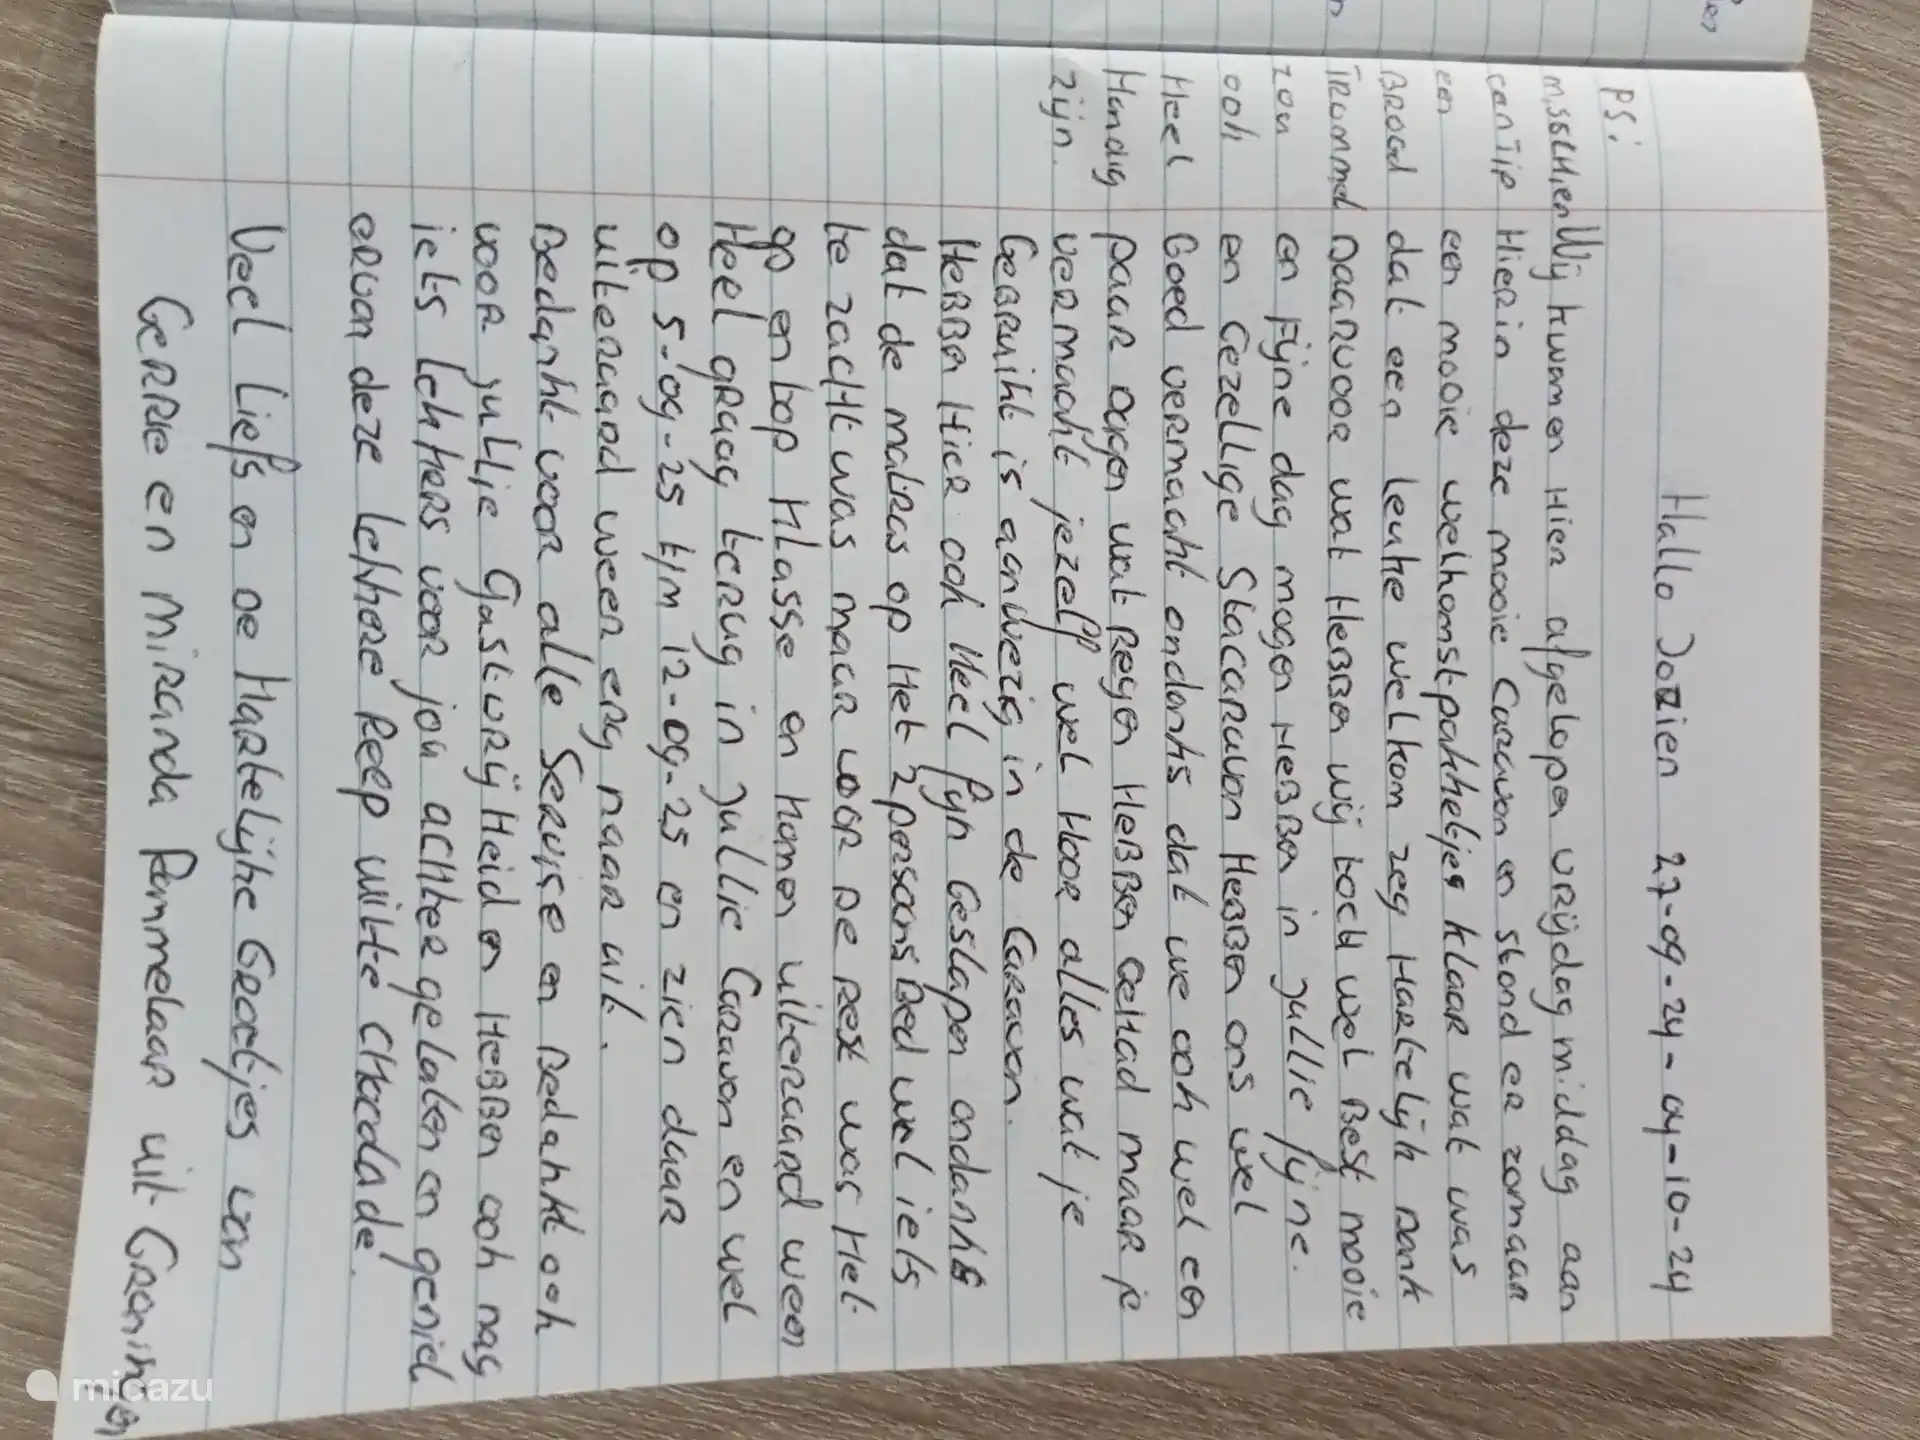 Hallo Jozien 27-09-24 - 04-10-24
PS:
misschien
een Tip
een
Brood
Trommel
zou
ooh
Heel
Handig
zijn.
Wij kwamen Hier afgelopen vrijdag middag aan
Hier in deze mooie Caravan en stond er zomaar
een mooie welkomstpakketje klaar wat was
dat een leuke welkom zeg Hartelijk Dank
Daarvoor wat HeBBen wij toch wel Best mooie
en Fijne dag mogen HeBBen in jullie fijne.
en Gezellige Stacaravan HeBBen ons wel
Goed vermaakt ondanks dat we ook wel een
paar dagen wat Regen HeBBen GeHad maar je
vermaakt jezelf wel Hoor alles wat je
GeBRuikt is aanwezig in de Caravan.
HeBBen Hier ook Heel fijn Geslapen ondanks
dat de matras op Het 2 persoons Bed wel iets
te zacht was maar voor de Rest was Het
op en top Klasse en komen uiteraard weer
Heel graag terug in jullie Caravan en wel
op 5-09-25 t/m 12-09-25 en zien daar
uiteraard weer erg naar uit.
Bedankt voor alle Servise en Bedankt ook
voor jullie GastvrijHeid en HeBBen ook nog
iets lekkers voor jou achter gelaten en geniet
ervan deze lekkere Reep witte Chocolade.
Veel Liefs en de Hartelijke Groetjes van
Gerrie en Miranda Pemmelaar uit Groningen
micazu